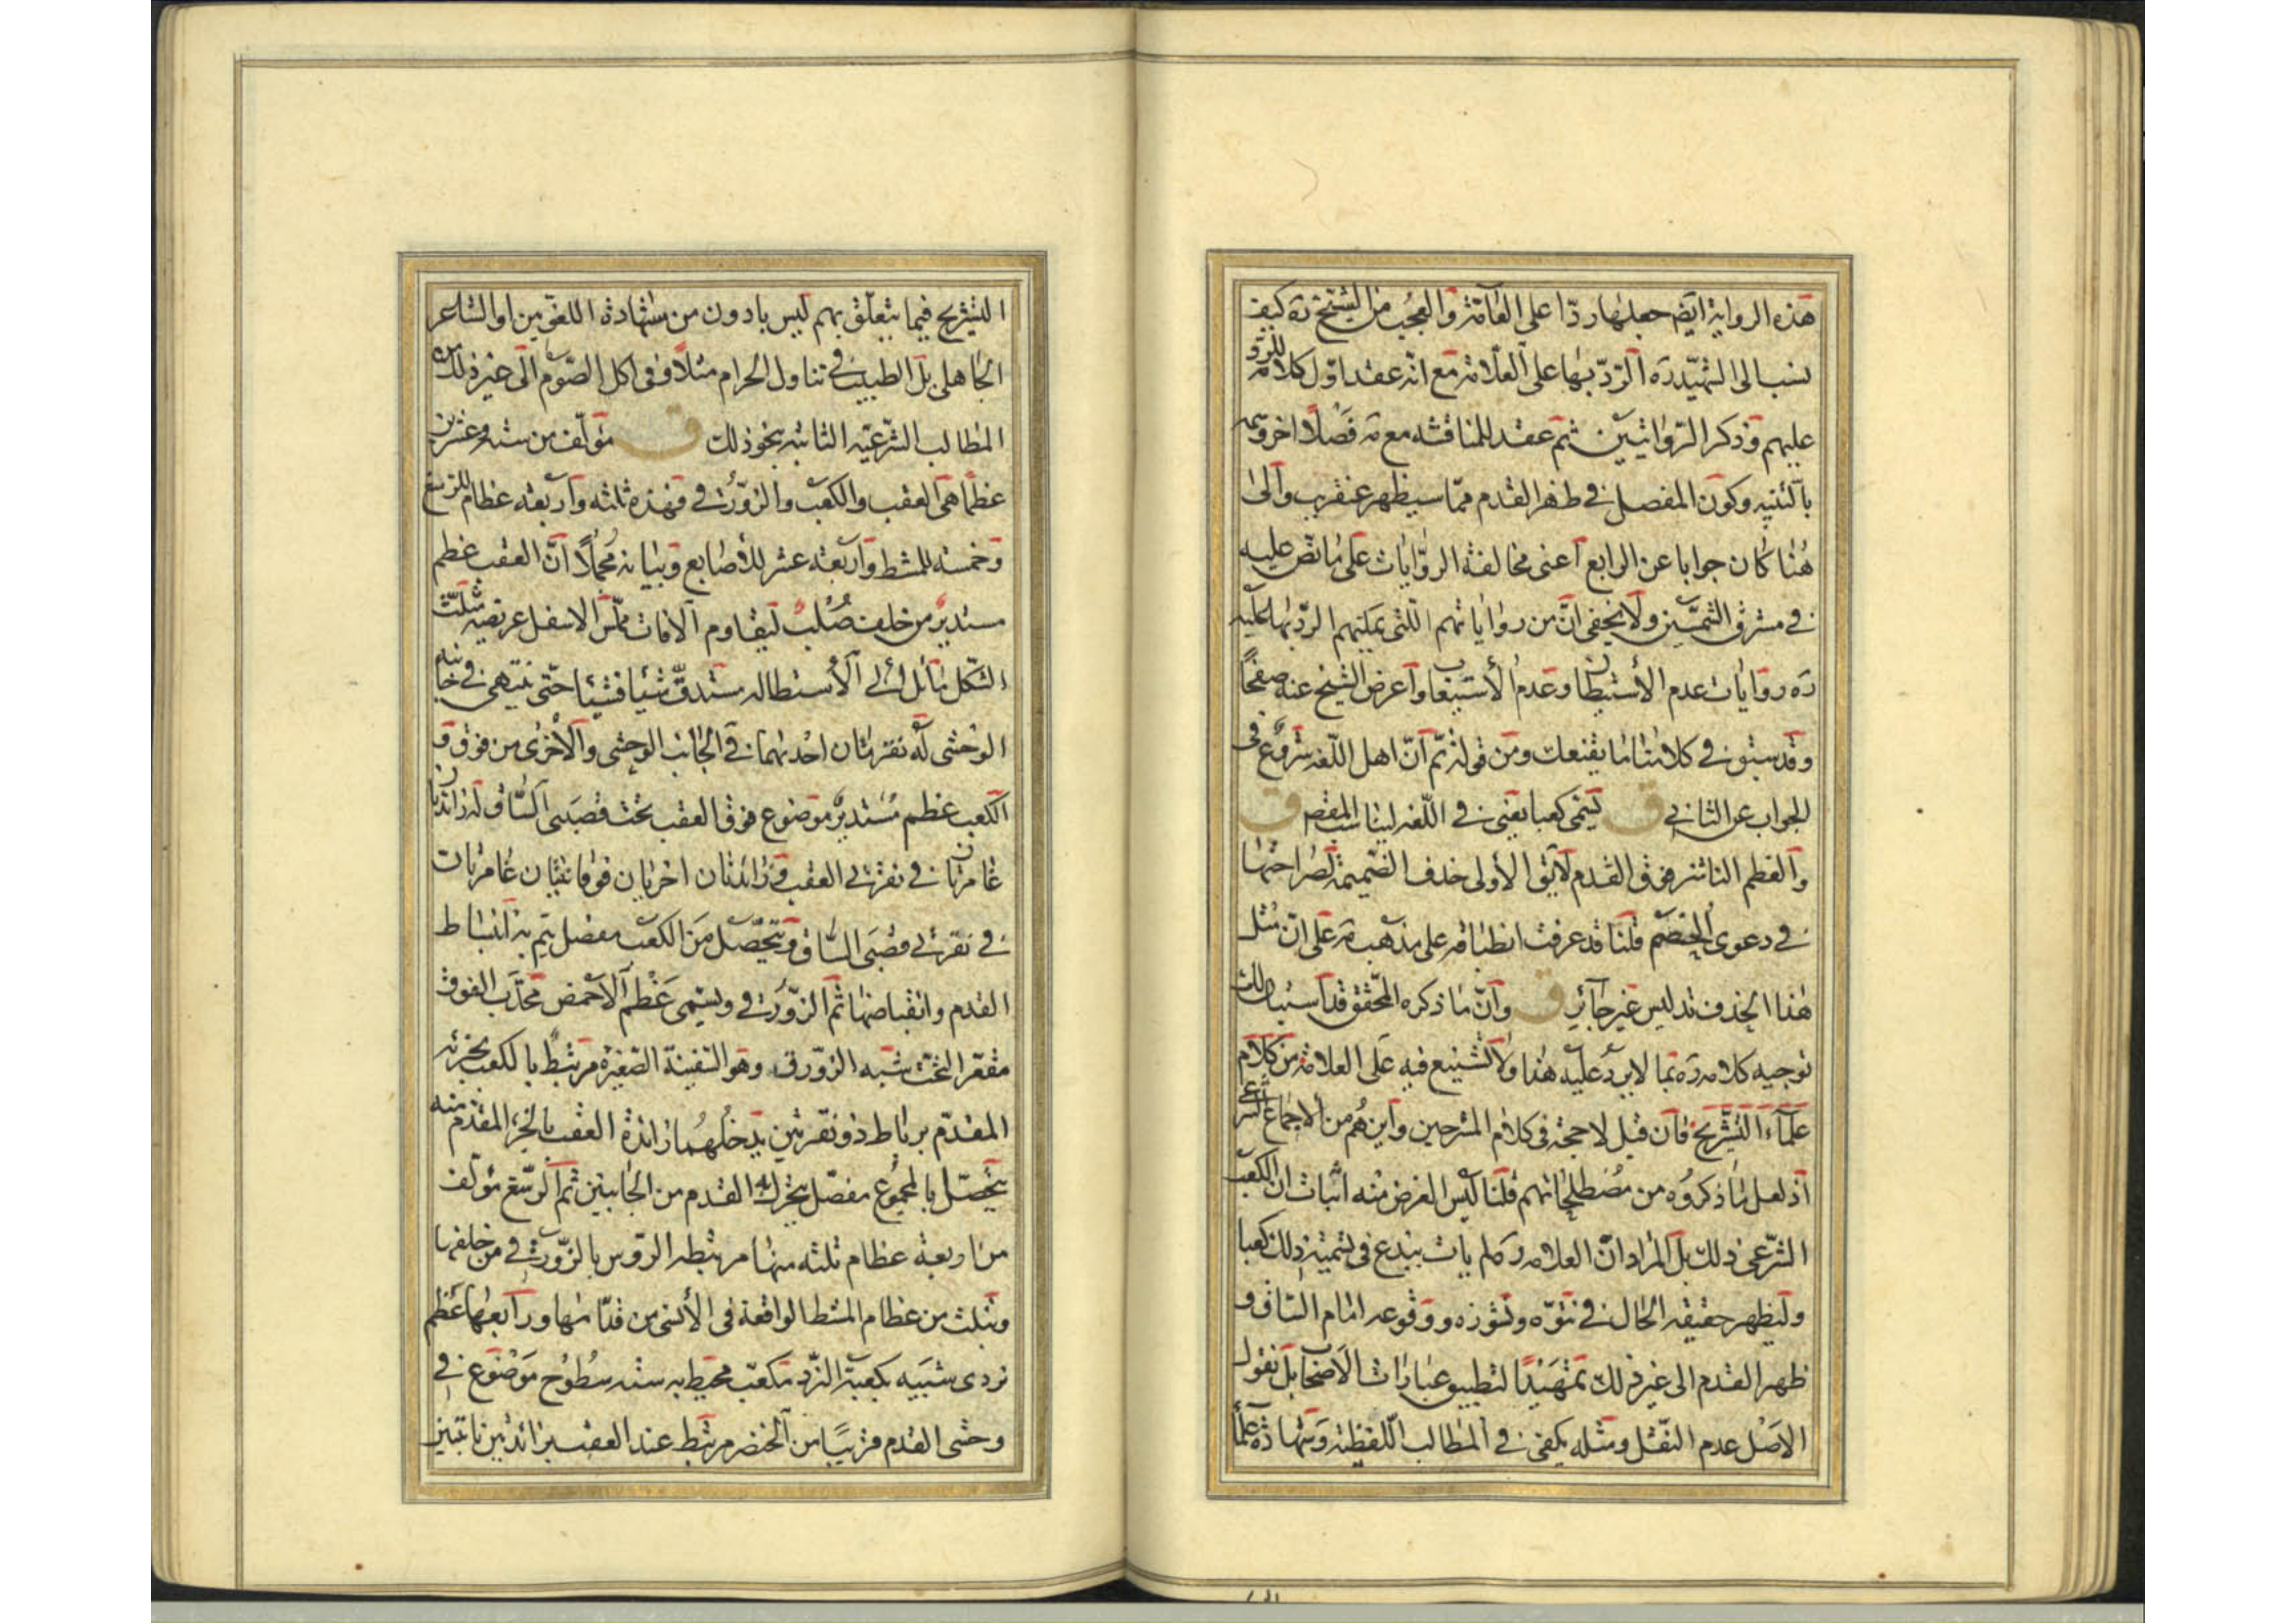 هذه الرواية ايضا جعلها ردّا على العامّة والعجب من الشيخ ره كيف
نسب الى الشهيد ره الردّ بها على العلّامة مع انّه عقد اوّل كلامه للردّ
عليهم وذكر الروايتين ثم عقد للمناقشة معه فصلا اخر وسمه
وكون المفصل في ظهر القدم ممّا سيظهر عنقريب والى
هنا كان جوابا عن الرابع اعنى مخالفة الروايات على ما نصّ عليه
في مشرق الشمسين ولا يخفى انّ من رواياتهم الّتى يمكنهم الردّ بها عليه
ره روايات عدم الأستبطان وعدم الأستيعاب واعرض الشيخ عنه صفحًا
وقد سبق في كلامنا ما يقنعك ومن قوله ثمّ انّ اهل اللّغه شروع فى
الجواب عن الثاني ق يسمّى كعبا يعنى في اللّغه ليناسب المقصد ق
والعظم الناشز فوق القدم لايق الأولى حذف الضميمة لصراحتها
في دعوى الخصم قلنا قد عرفت انطباقه على مذهبه على انّ مثل
هذا الحذف تدليس غير جائز ق وانّ ما ذكره المحقّق قد استبان لك
توجيه كلامه ره بما لا يرد عليه هذا ولا تشنيع فيه على العلامة من كلام
علماء التشريح فان قيل لا حجة فى كلام المشرحين واين هم من الاجماع الشرعى
اذ لعل ما ذكروه من مصطلحاتهم قلنا ليس الغرض منه اثبات ان الكعب
الشرعى ذلك بل المراد انّ العلامه ره لم يات ببدع فى تسمية ذلك كعبا
وليظهر حقيقه الحال في نتوّه ونشوزه ووقوعه امام الساق و
ظهر القدم الى غير ذلك تمهيدًا لتطبيق عبارات الاصحاب بل نقول
الاصل عدم النقل ومثله يكفى في المطالب اللّفظية وشهادة علماء
التشريح فيما يتعلّق بهم ليس بادون من شهادة اللغويين او الشاعر
الجاهلى بل الطبيب في تناول الحرام مثلا وفى اكل الصّوم الى غير ذلك من
المطالب الشرعيّه الثابته بنحو ذلك ق مؤلّف من سته وعشرين
عظما هى العقب والكعب والزورقي فهذه ثلثه واربعة عظام للرسغ
وخمسة للمشط واربعة عشر للأصابع وبيانه مجملًا انّ العقب عظم
مستدير من خلف صُلب ليقاوم الآفات مملّس الاسفل عريضه مثلّث
الشكل مائل الى الأستطاله مستدقّ شيئا فشيئا حتى ينتهى في جانبه
الوحشى له نقرتان احديهما في الجانب الوحشى والأخرى من فوق و
الكعب عظم مستدير موضوع فوق العقب تحت قصبتى الساق له زائدتان
غامرتان في نقرتى العقب وزائدتان اخريان فوقانيّتان غامرتان
في نقرتى قصبتى الساق ويتحصّل من الكعب مفصل يتم به انبساط
القدم وانقباضها ثم الزورقي ويسمى عظم الاخمص محدّب الفوق
مقعّر التحت شبه الزورق وهو السّفينة الصّغيرة مرتبط بالكعب بجزئه
المقدّم برباط ذو نقرتين يدخلهما زائدة العقب بالجزء المقدّم منه
يحصّل بالمجموع مفصل يتحرّك به القدم من الجانبين ثم الرسغ مؤلّف
من اربعة عظام ثلثه منها مرتبطه الروس بالزورقي من خلفها
وبثلث من عظام المشط الواقعة فى الأنسى من قدّامها ورابعها عظم
نردى شبيه بكعبة النرد مكعّب محيط به سته سطوح موضوع في
وحشى القدم قريبًا من الخنصر مرتبط عند العقب بزائدتين ناتيتين